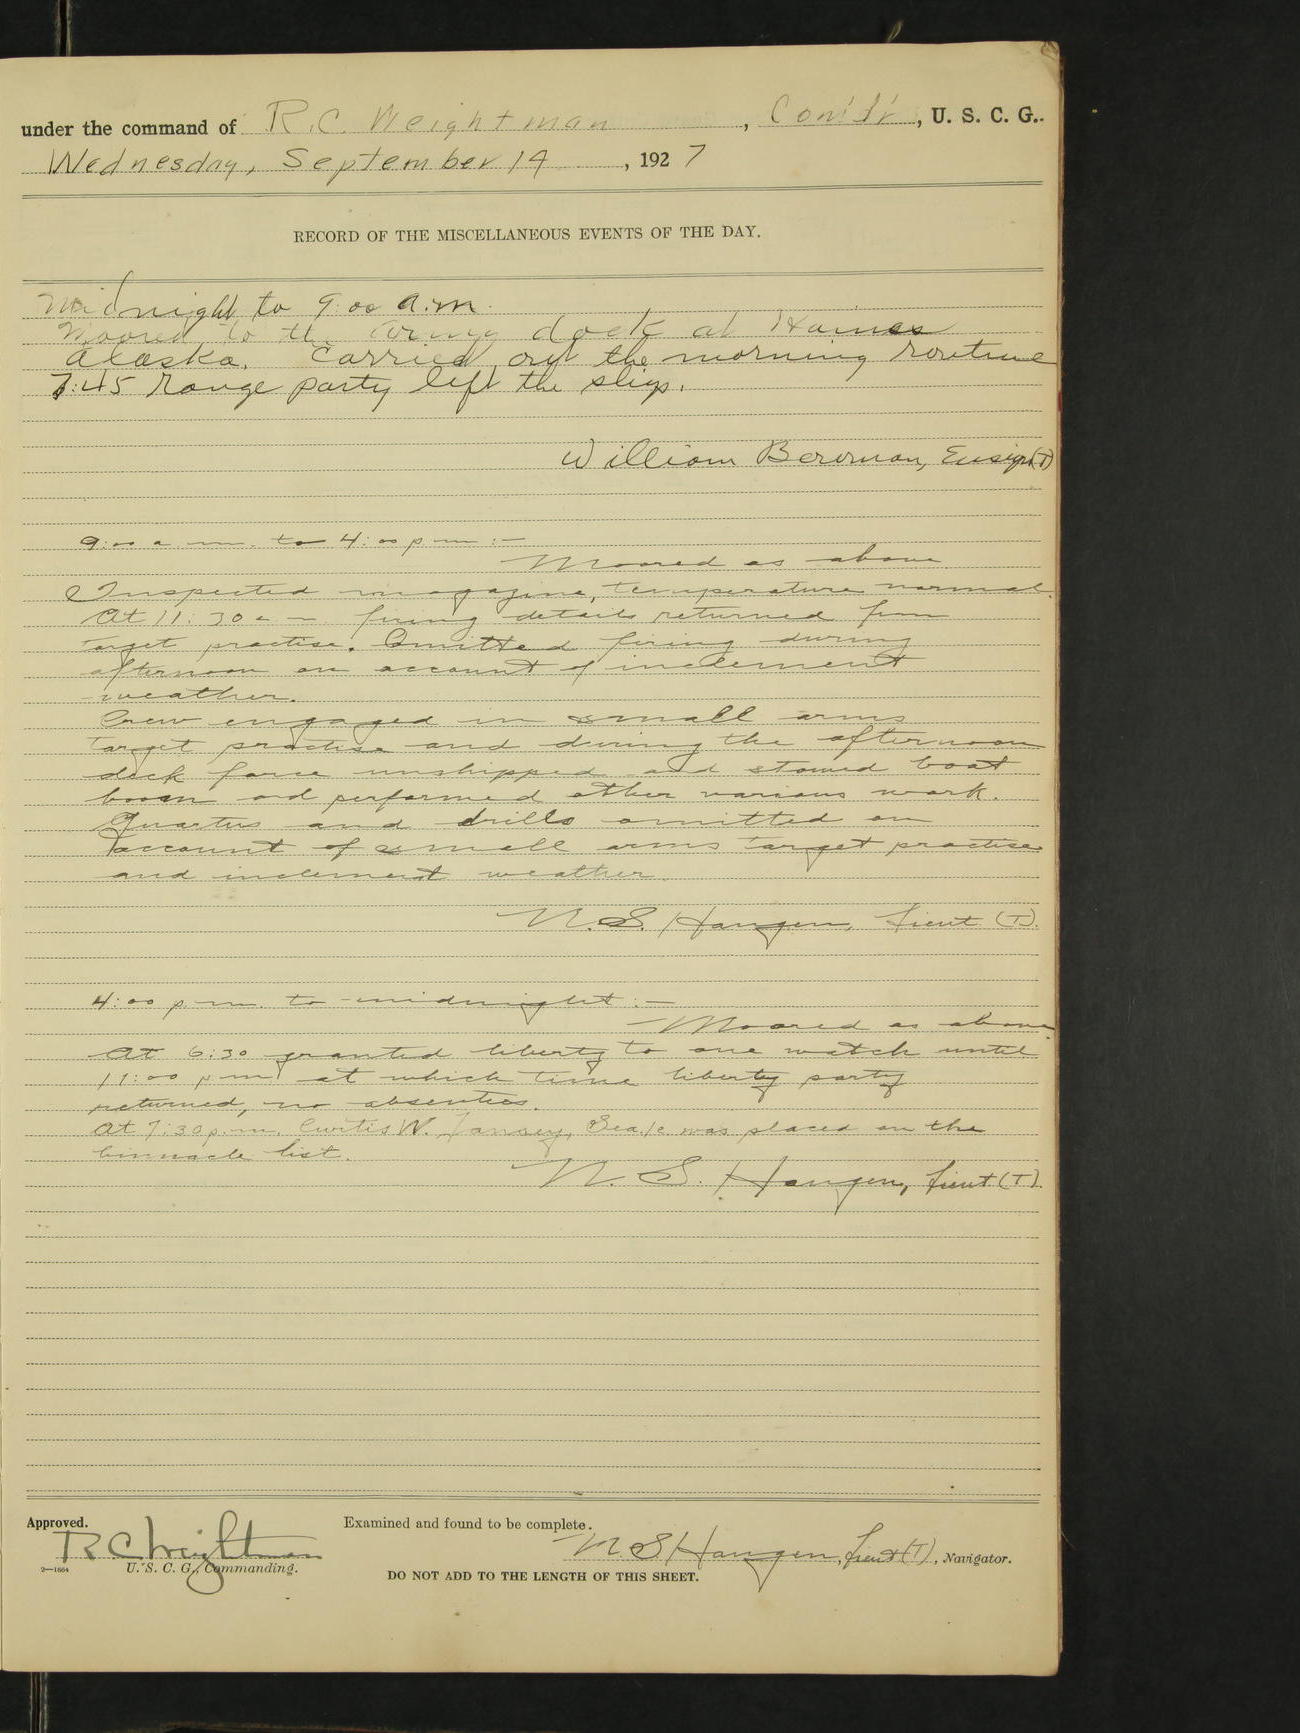 under the command of R.C. Weightman, Com'd'r, U. S. C. G.
Wednesday, September 14, 1927
RECORD OF THE MISCELLANEOUS EVENTS OF THE DAY.
Midnight to 9:00 a.m.
Moored to the Army dock at Haines
Alaska. Carried out the morning routine
7:45 range party left the ship.
William Berman, Ensign (T)
9:00 a.m. to 4:00 p m :—
Moored as above
Inspected magazine, temperature normal.
At 11:30 a m firing details returned from
target practise. Omitted firing during
afternoon on account of inclement
weather.
Crew engaged in small arms
target practise and during the afternoon
deck force unshipped and stowed boat
boom and performed other various work.
Quarters and drills omitted on
account of small arms target practise
and inclement weather.
N.S. Haugen, Lieut (T).
4:00 p.m. to midnight :—
Moored as above
At 6:30 granted liberty to one watch until
11:00 p m at which time liberty party
returned, no absentees.
At 7:30 p.m. Curtis W. Sea.1c. was placed on the
binnacle list.
N. S. Haugen, Lieut (T).
Approved. Examined and found to be complete.
R C Weightman N S Haugen, Lieut (T), Navigator.
2—1664 U. S. C. G., Commanding.
DO NOT ADD TO THE LENGTH OF THIS SHEET.